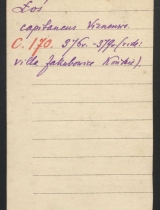 Łoś
capitaneus Visnensis.
C. 170. 376v.-377v. (vide:
villa Jakubowice Końskie)